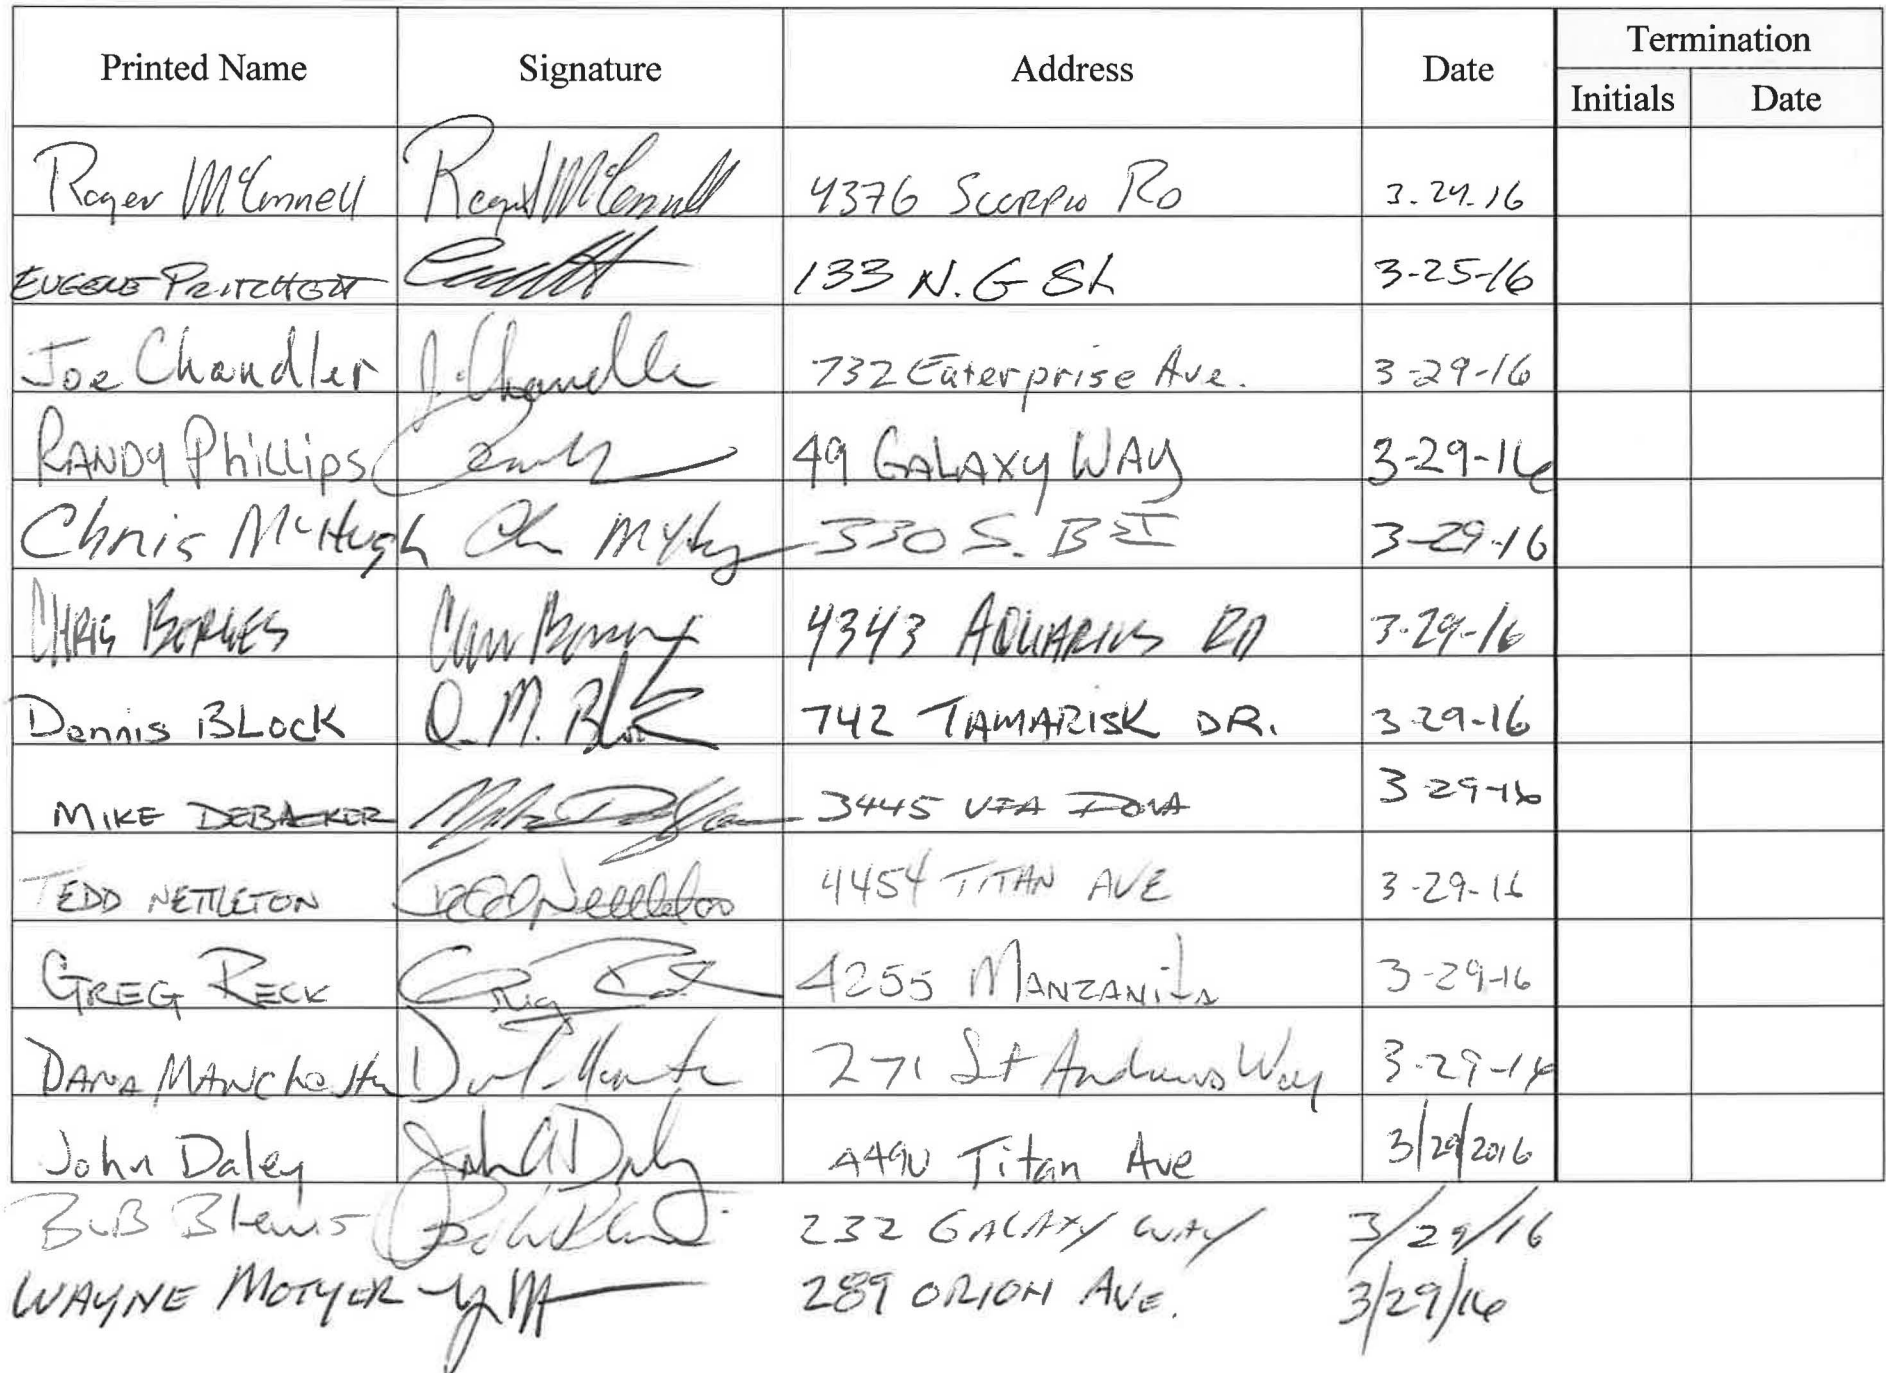 Printed Name Signature Address Date Termination
Initials Date
Roger McConnell Roger McConnell 4376 Scorpio Rd 3.24.16
EUGENE PRITCHETT 133 N. G St 3-25-16
Joe Chandler J. Chandler 732 Enterprise Ave. 3-29-16
RANDy Phillips 49 GALAXY WAY 3-29-16
Chris McHugh 330 S. B ST 3-29-16
CHRIS BORGES 4343 AQUARIUS RD 3-29-16
Dennis BLOCK D. M. Block 742 TAMARISK DR. 3-29-16
MIKE DEBACKER 3445 VIA DONA 3-29-16
TEDD NETTLETON Tedd Nettleton 4454 TITAN AVE 3-29-16
GREG RECK Greg 4255 MANZANITA 3-29-16
DANA MANCHester 271 St Andrews Way 3-29-16
John Daley John A Daley 4490 Titan Ave 3/29/2016
BOB 232 GALAXY WAY 3/29/16
WAYNE MOTYER 289 ORION AVE. 3/29/16